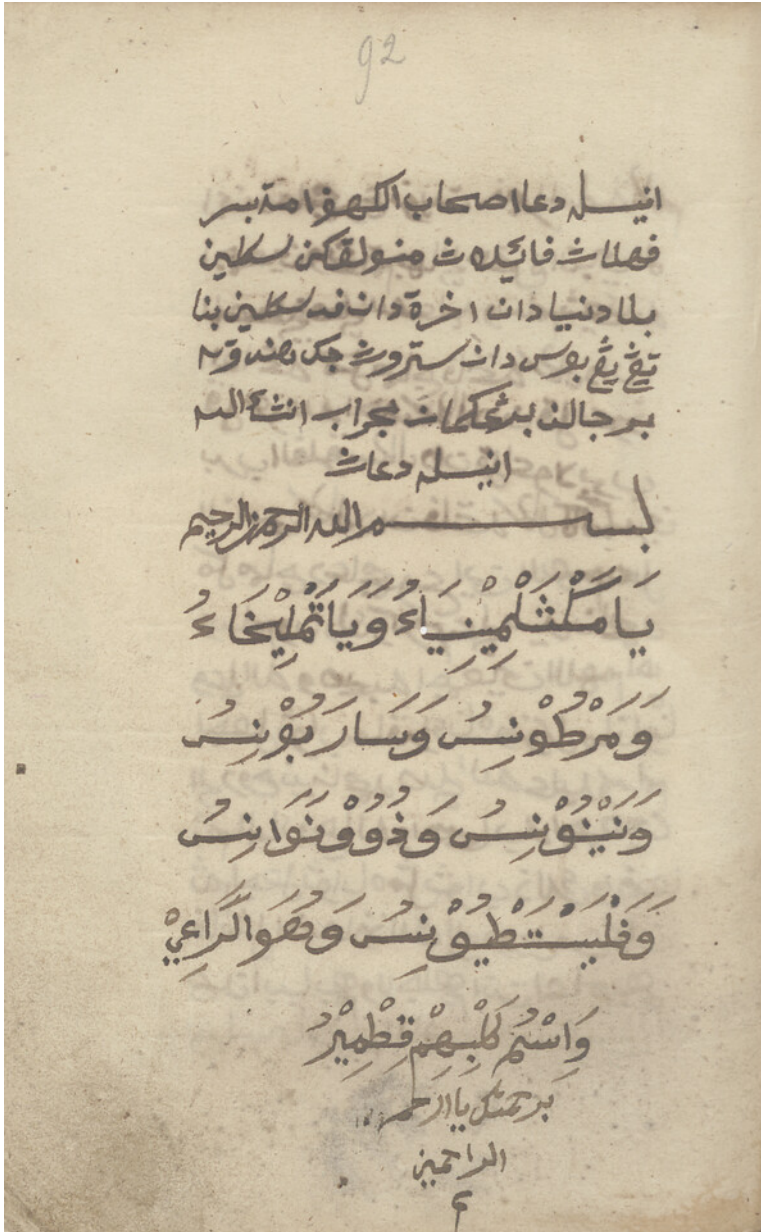 92
انيله دعا اصحاب الكهف امة بسر
فهلاث فائيدهث منولقكن سكلين
بلا دنيا دان اخرة دان فد سكلين بنا
تڠ يڠ بوس دان ستروث جك هندق
برجالن بڠكمان مجراب انشاالله
انيله دعاث
بسم الله الرحمن الرحيم
يَا مَكْثَلْمِيْنِيَاءُ وَيَا تَمْلِيْخَاءُ
وَمَرْطُوْنِسُ وَسَارَبُوْنِسُ
وَنَيْنُوْنِسُ وَذُوْوَنَوَانِسُ
وَفَلْيَسْتَطْيُوْنِسُ وَهُوَ الرَّاعِيْ
وَاسْمُ كَلْبِهِمْ قِطْمِيْرُ
برحمتك يا ارحم
الراحمين
م